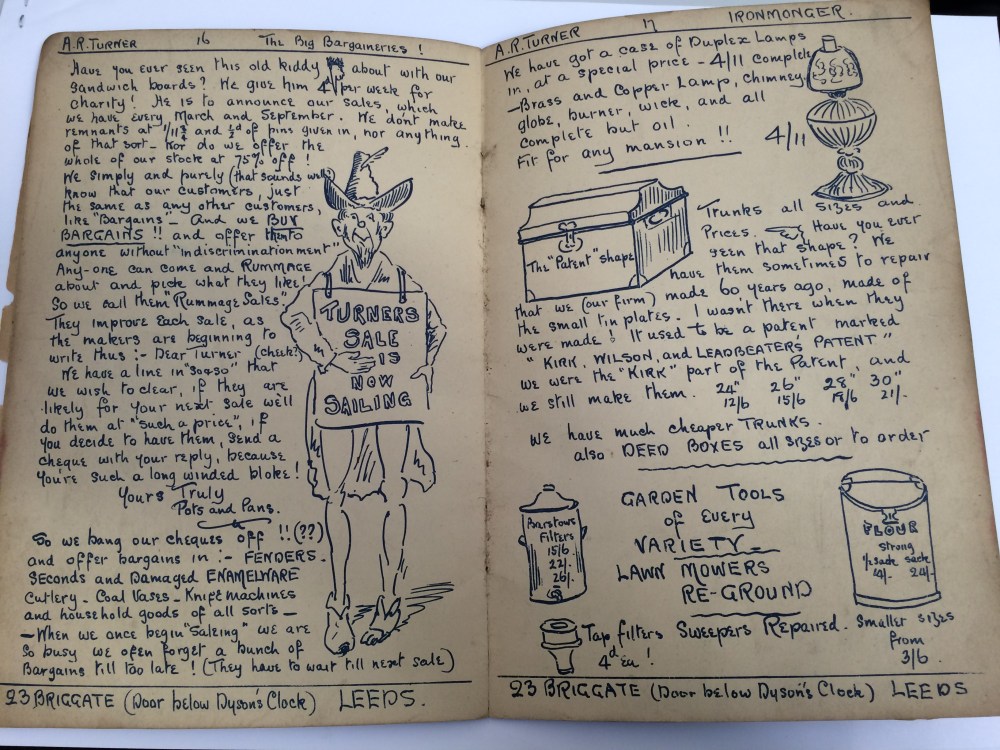 A.R. TURNER 16 The Big Bargaineries !
Have you ever seen this old kiddy about with our
sandwich boards? We give him 4D per week for
charity! He is to announce our sales, which
we have every March and September. We don't make
remnants at 1/11¾ and ½d of pins given in, nor anything
of that sort - Nor do we offer the
whole of our stock at 75% off !
We simply and purely (that sounds well)
know that our customers, just
the same as any other customers,
like "Bargains" - And we BUY
BARGAINS !! and offer them to
anyone without "indiscrimination ment"
Any-one can come and RUMMAGE
about and pick what they like!
So we call them "Rummage Sales"
They improve each sale, as
the makers are beginning to
write thus :- Dear Turner (cheek?)
We have a line in "so & so" that
we wish to clear, if they are
likely for your next sale we'll
do them at "such a price", if
you decide to have them, send a
cheque with your reply, because
you're such a long winded bloke !
Yours Truly
Pots and Pans.
So we bang our cheques off !! (??)
and offer bargains in :- FENDERS.
Seconds and Damaged ENAMELWARE
Cutlery - Coal Vases - Knife machines
and household goods of all sorts -
- When we once begin "Saleing" we are
so busy we often forget a bunch of
Bargains till too late ! (They have to wait till next sale)
TURNERS
SALE
IS
NOW
SAILING
23 BRIGGATE (Door below Dyson's Clock) LEEDS.
A.R. TURNER 17 IRONMONGER.
We have got a case of Duplex Lamps
in, at a special price - 4/11 complete
- Brass and Copper Lamp, chimney,
globe, burner, wick, and all
complete but oil.
Fit for any mansion !!
4/11
The "Patent" shape
Trunks all sizes and
Prices. Have you ever
seen that shape? We
have them sometimes to repair
that we (our firm) made 60 years ago, made of
the small tin plates. I wasn't there when they
were made ! It used to be a patent marked
"KIRK, WILSON, and LEADBEATER'S PATENT"
we were the "KIRK" part of the Patent, and
we still make them. 24" 26" 28" 30"
12/6 15/6 18/6 21/-
We have much cheaper TRUNKS.
also DEED BOXES all sizes or to order
Barstows
Filters
15/6
22/-
26/-
GARDEN TOOLS
of Every
VARIETY
LAWN MOWERS
RE-GROUND
FLOUR
strong
½ sack sack
4/- 24/-
Tap filters
4d ea !
Sweepers Repaired.
Smaller sizes
from
3/6.
23 BRIGGATE (Door below Dyson's Clock) LEEDS